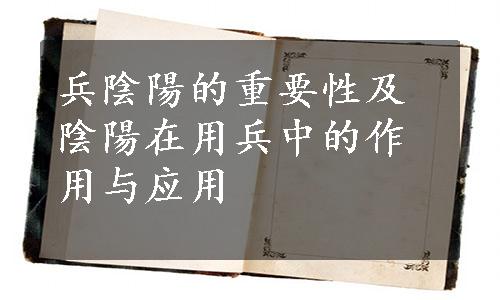 兵陰陽的重要性及
陰陽在用兵中的作
用与应用